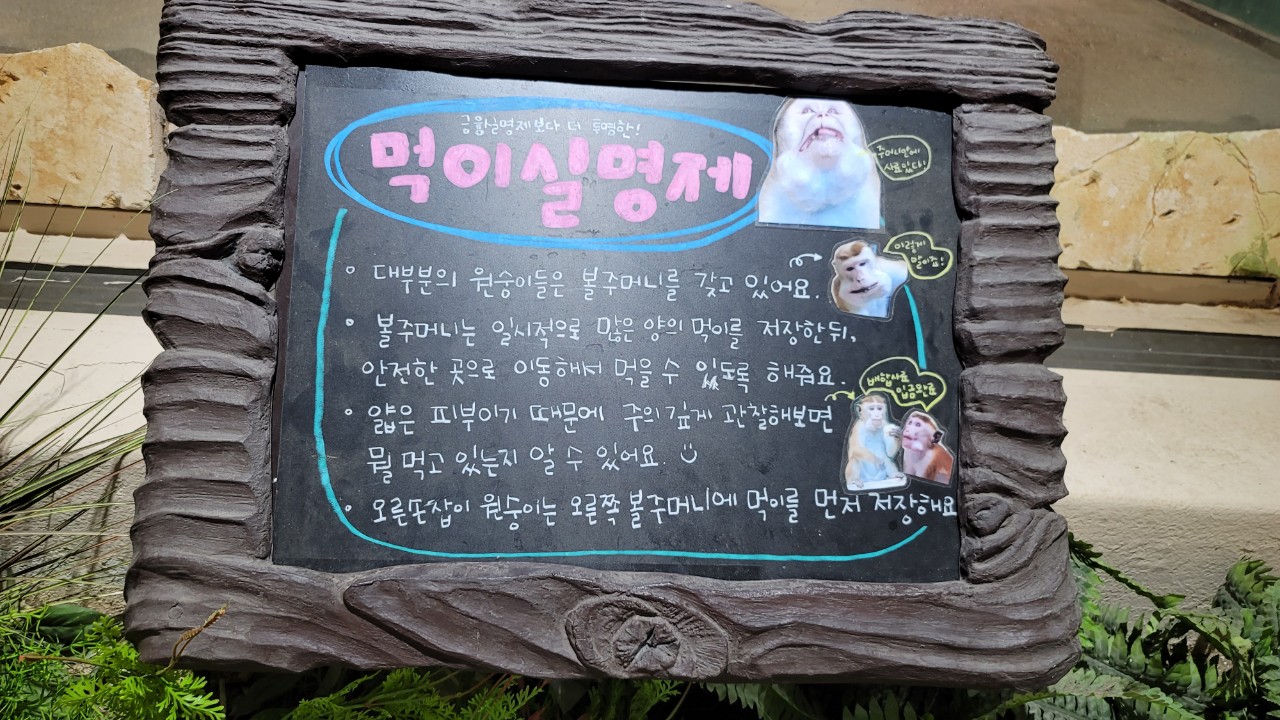 금융실명제보다 더 투명한!
먹이실명제
주머니안에
사료있다!
이렇게
말이죠!
• 대부분의 원숭이들은 볼주머니를 갖고 있어요.
• 볼주머니는 일시적으로 많은 양의 먹이를 저장한뒤,
안전한 곳으로 이동해서 먹을 수 있도록 해줘요.
배합사료
입금완료
• 얇은 피부이기 때문에 주의깊게 관찰해보면
뭘 먹고 있는지 알 수 있어요.
• 오른손잡이 원숭이는 오른쪽 볼주머니에 먹이를 먼저 저장해요